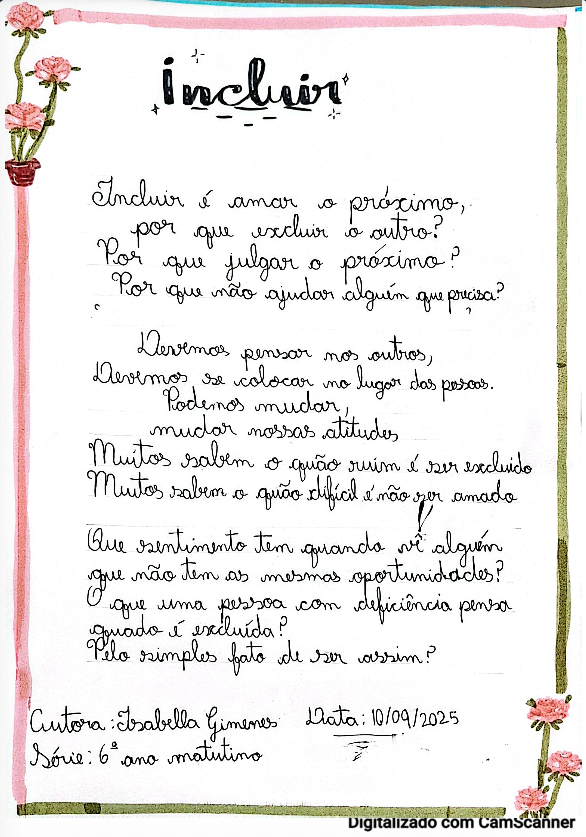 incluir
Incluir é amar o próximo,
por que excluir o outro?
Por que julgar o próximo?
Por que não ajudar alguém que precisa?
Devemos pensar nos outros,
Devemos se colocar no lugar das pessoas.
Podemos mudar,
mudar nossas atitudes
Muitos sabem o quão ruim é ser excluido
Muitos sabem o quão difícil é não ser amado
Que sentimento tem quando vê alguém
que não tem as mesmas oportunidades?
O que uma pessoa com deficiência pensa
quado é excluída?
Pelo simples fato de ser assim?
Autora: Isabella Gimenes Data: 10/09/2025
Série: 6º ano matutino
Digitalizado com CamScanner